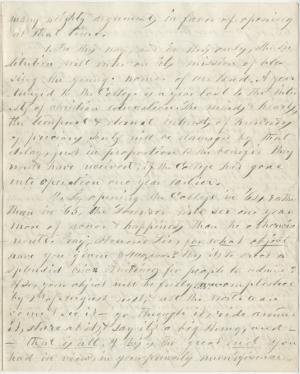 many weighty arguments in favor of opening
at that time.
1. In this way, and in this only, the In-
stitution will enter on its mission of bles-
sing the young women of our land. A year
lost to the College is a year lost to the inter-
ests of christian education. The minds, hearts,
the temporal & eternal interests of hundreds
of precious souls will be damaged by that
delay, just in proportion to the benefits they
would have received, if the College had gone
into operation one year earlier.
2. By opening the College in '64, rather
than in '65, the Founder will see one year
more of honor & happiness than he otherwise
would. Say, Honored Sir, for what object
have you given
splendid for people to admire?
If so, your object will be fully accomplished
by August next; all the nation can
come & see it - go through it, ride around
it, stare at it, & say it's a big thing, and -
- that is all. If this is the great end you
had in view, in your princely munificence